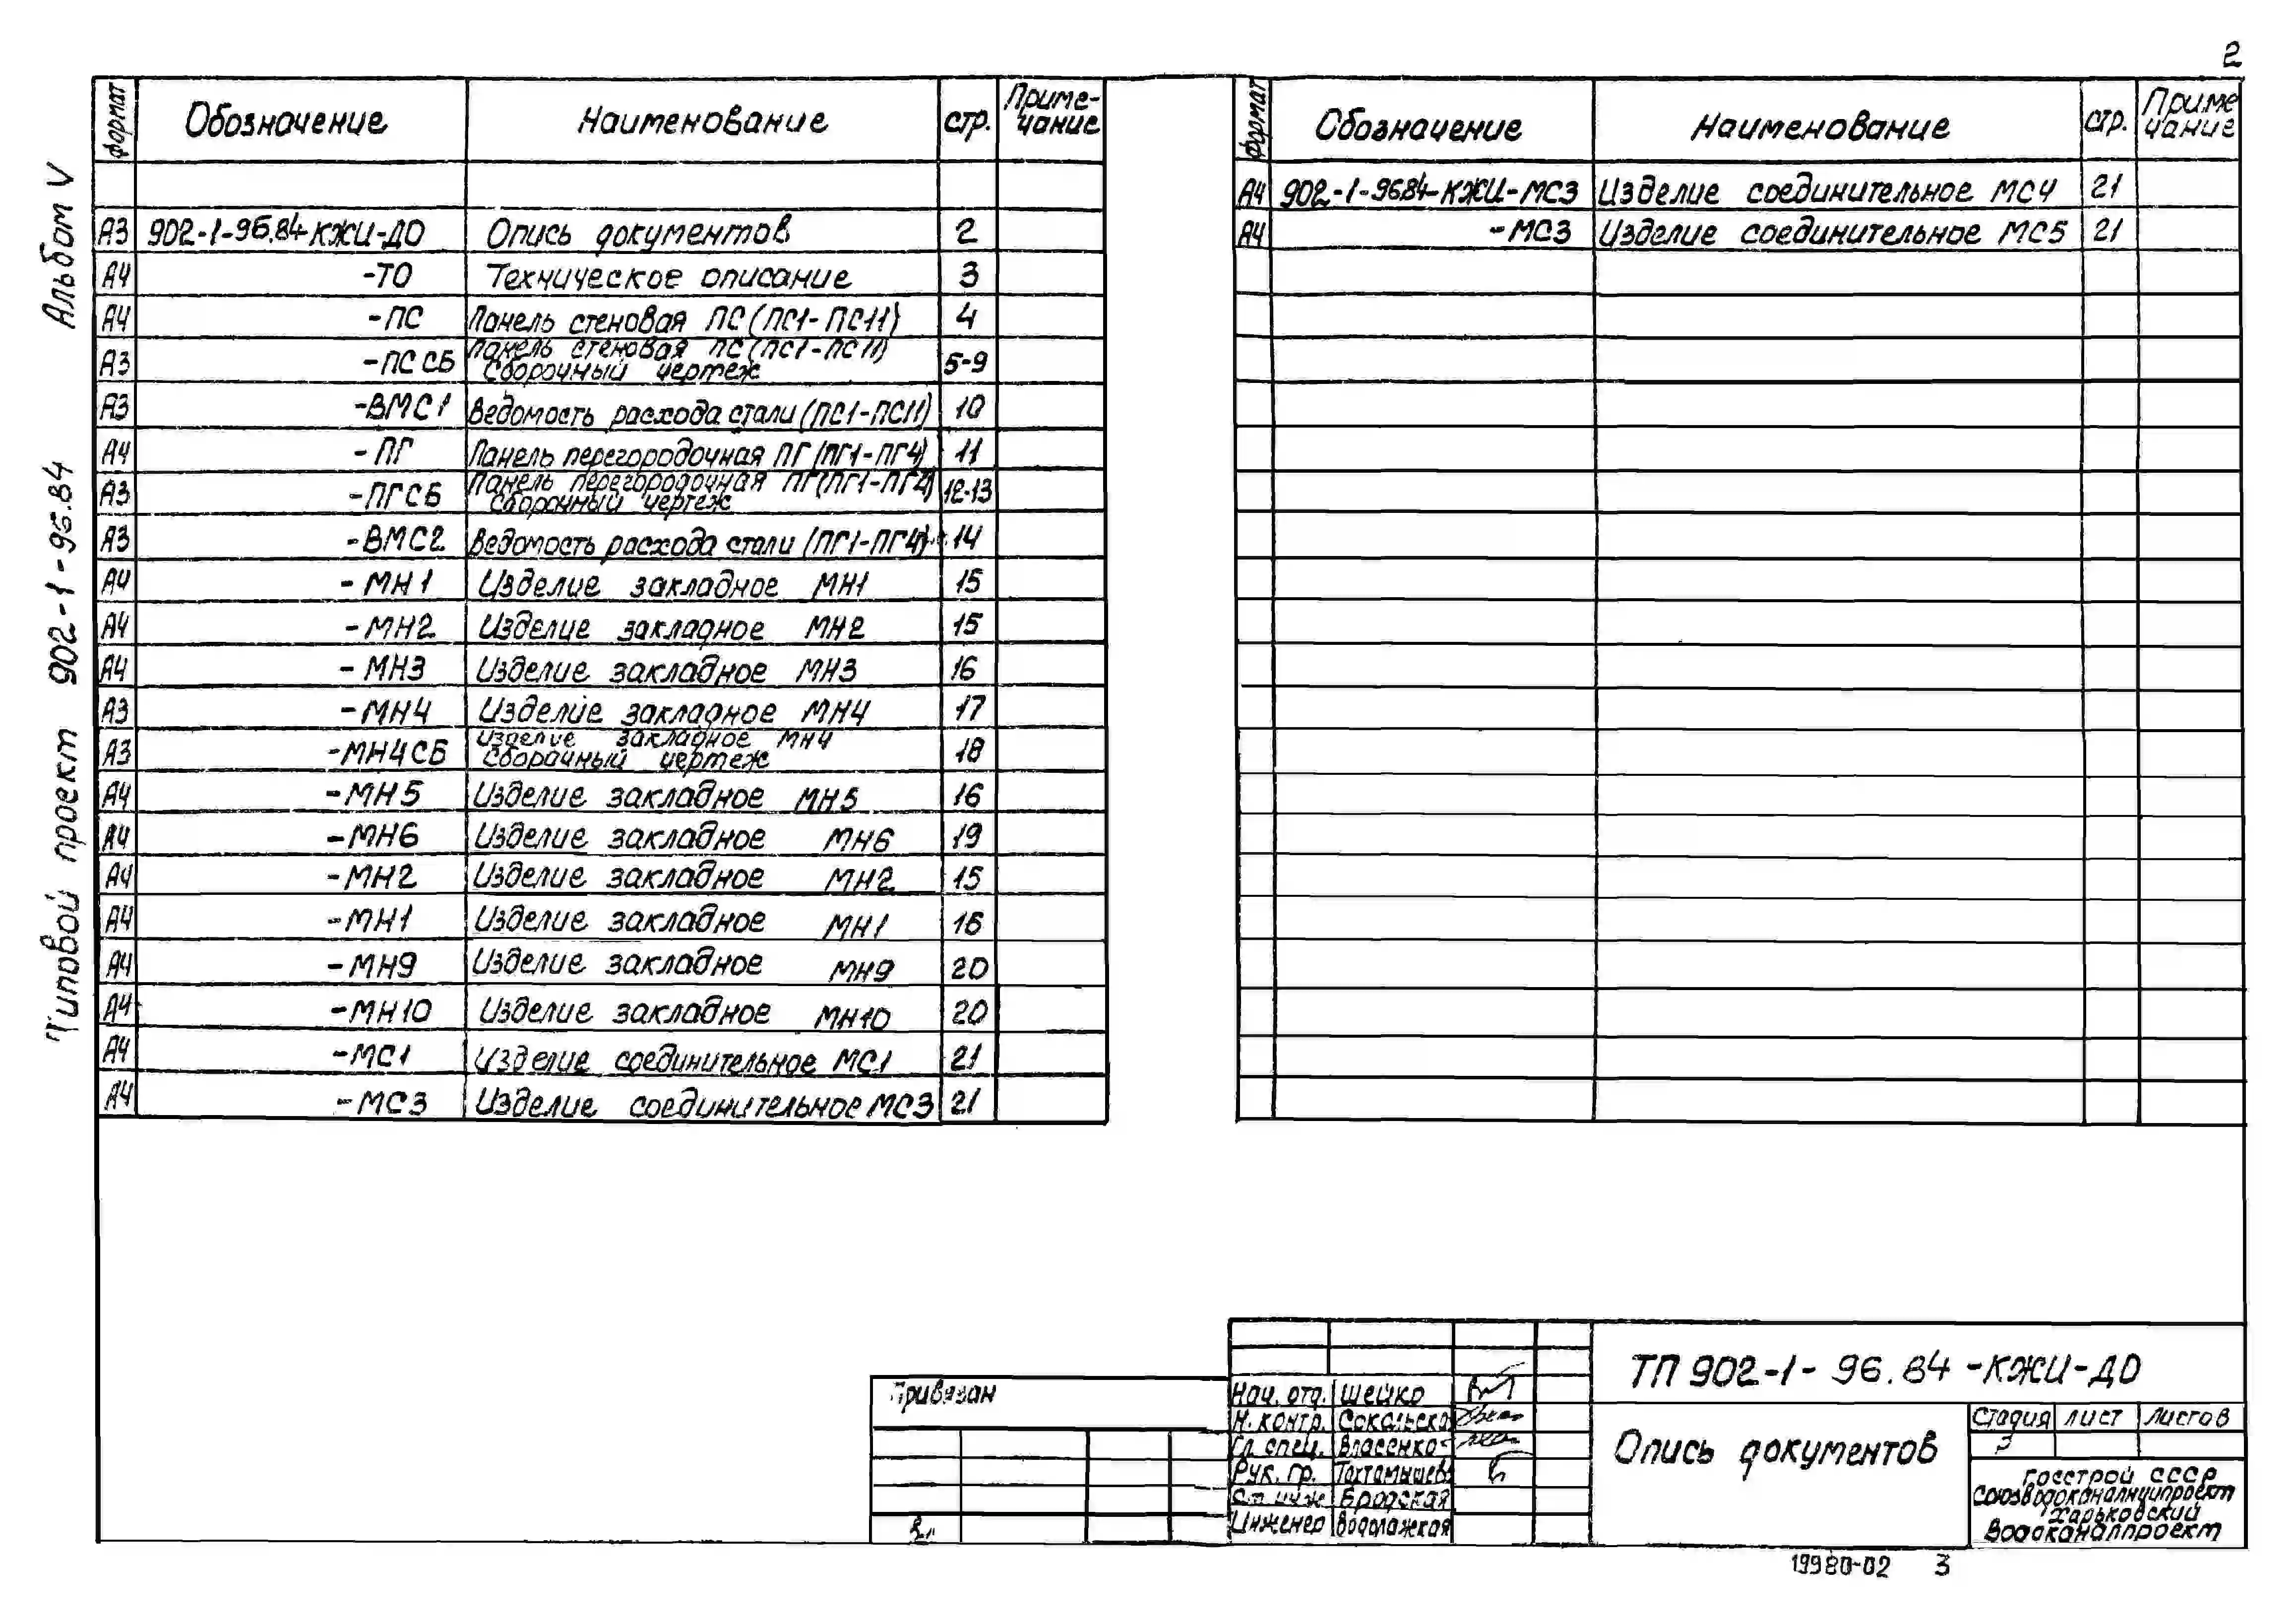 2
Альбом V
Типовой проект 902-1-96.84
формат Обозначение Наименование стр. Приме-
чание
А3 902-1-96.84-КЖИ-ДО Опись документов 2
А4 -ТО Техническое описание 3
А4 -ПС Панель стеновая ПС (ПС1-ПС11) 4
А3 -ПС СБ Панель стеновая ПС (ПС1-ПС11)
Сборочный чертеж 5-9
А3 -ВМС1 Ведомость расхода стали (ПС1-ПС11) 10
А4 -ПГ Панель перегородочная ПГ (ПГ1-ПГ4) 11
А3 -ПГСБ Панель перегородочная ПГ(ПГ1-ПГ4)
Сборочный чертеж 12-13
А3 -ВМС2 Ведомость расхода стали (ПГ1-ПГ4) 14
А4 -МН1 Изделие закладное МН1 15
А4 -МН2 Изделие закладное МН2 15
А4 -МН3 Изделие закладное МН3 16
А3 -МН4 Изделие закладное МН4 17
А3 -МН4СБ Изделие закладное МН4
Сборочный чертеж 18
А4 -МН5 Изделие закладное МН5 16
А4 -МН6 Изделие закладное МН6 19
А4 -МН2 Изделие закладное МН2 15
А4 -МН1 Изделие закладное МН1 16
А4 -МН9 Изделие закладное МН9 20
А4 -МН10 Изделие закладное МН10 20
А4 -МС1 Изделие соединительное МС1 21
А4 -МС3 Изделие соединительное МС3 21
формат Обозначение Наименование стр. Приме
чание
А4 902-1-9684-КЖИ-МС3 Изделие соединительное МС4 21
А4 -МС3 Изделие соединительное МС5 21
Привязан
Нач. отд. Шейко
Н. контр. Сокольска
Гл. спец. Власенко
Рук. гр. Тохтамышев
Ст. инж Бродская
Инженер Водолажская
ТП 902-1-96.84-КЖИ-ДО
Опись документов
Стадия лист Листов
Госстрой СССР
Союзводоканалниипроект
Харьковский
Водоканалпроект
19980-02 3